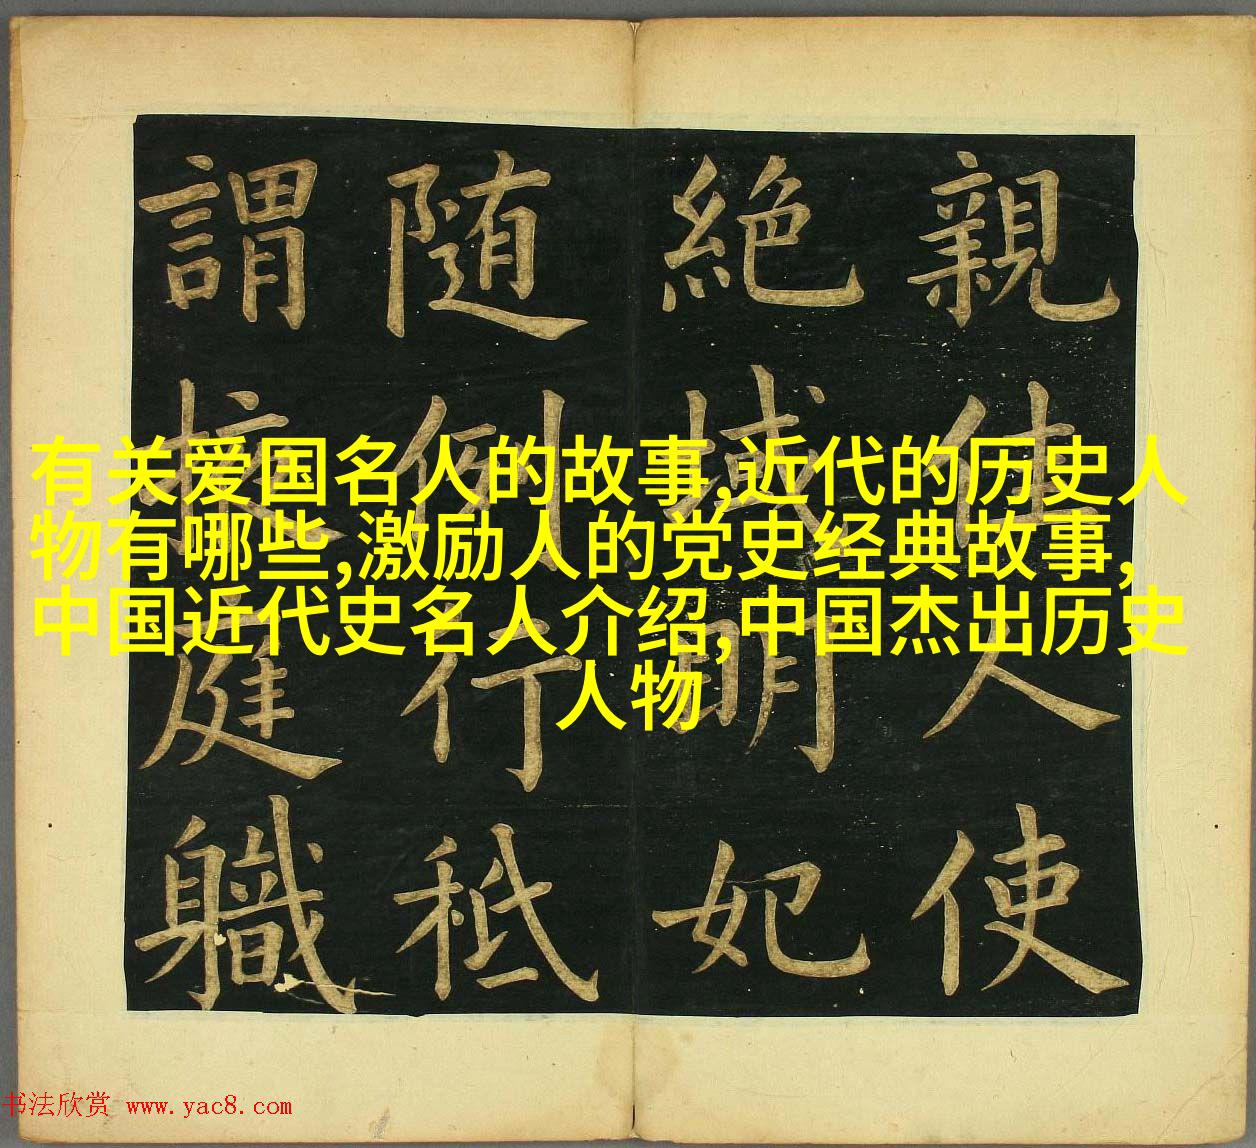 親佳人使
絶域明妃
随例行秪
謂掖庭職
有关爱国名人的故事,近代的历史人
物有哪些,激励人的党史经典故事,
中国近代史名人介绍,中国杰出历史
人物
书法欣赏 www.yac8.com